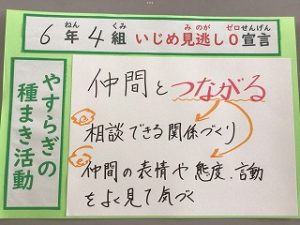 6年4組 いじめ見逃し0宣言
ねん くみ みのが ゼロせんげん
やすらぎの
種まき活動
仲間とつながる
相談できる関係づくり
仲間の表情や態度、言動
をよく見て気づく